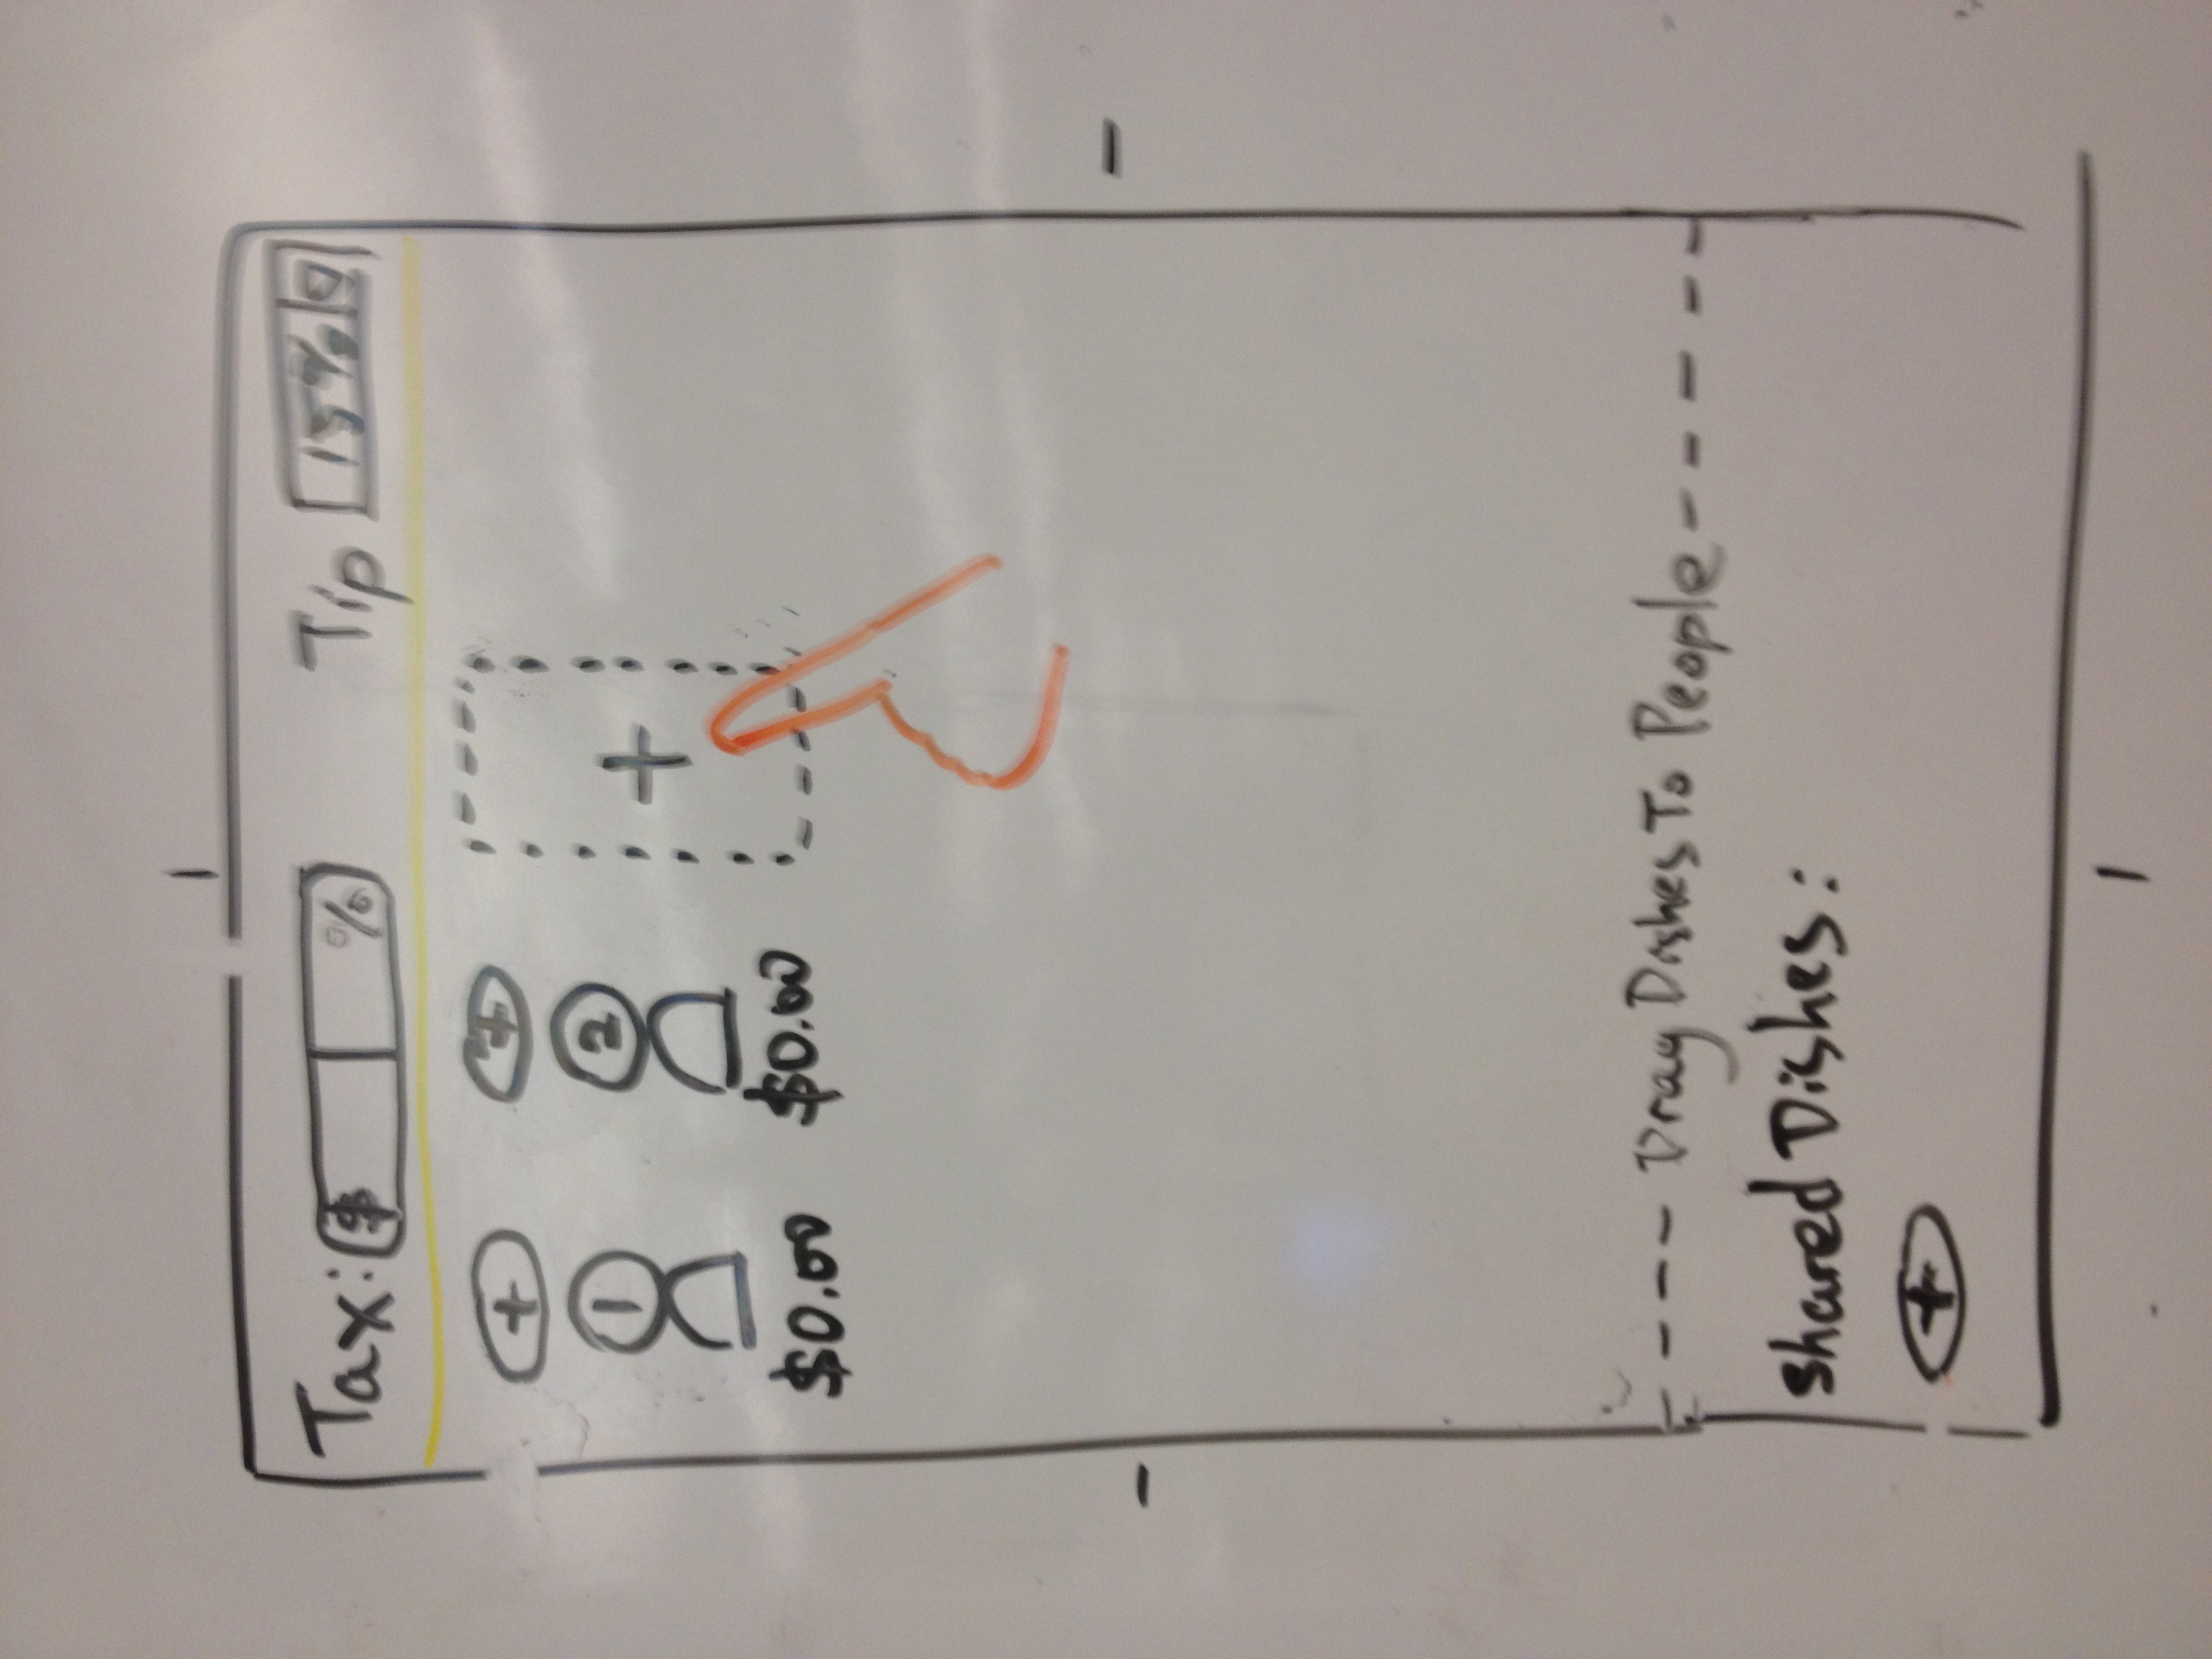 Tax: $ % Tip 15%
+ +
1 2 +
$0.00 $0.00
Drag Dishes To People
Shared Dishes:
+